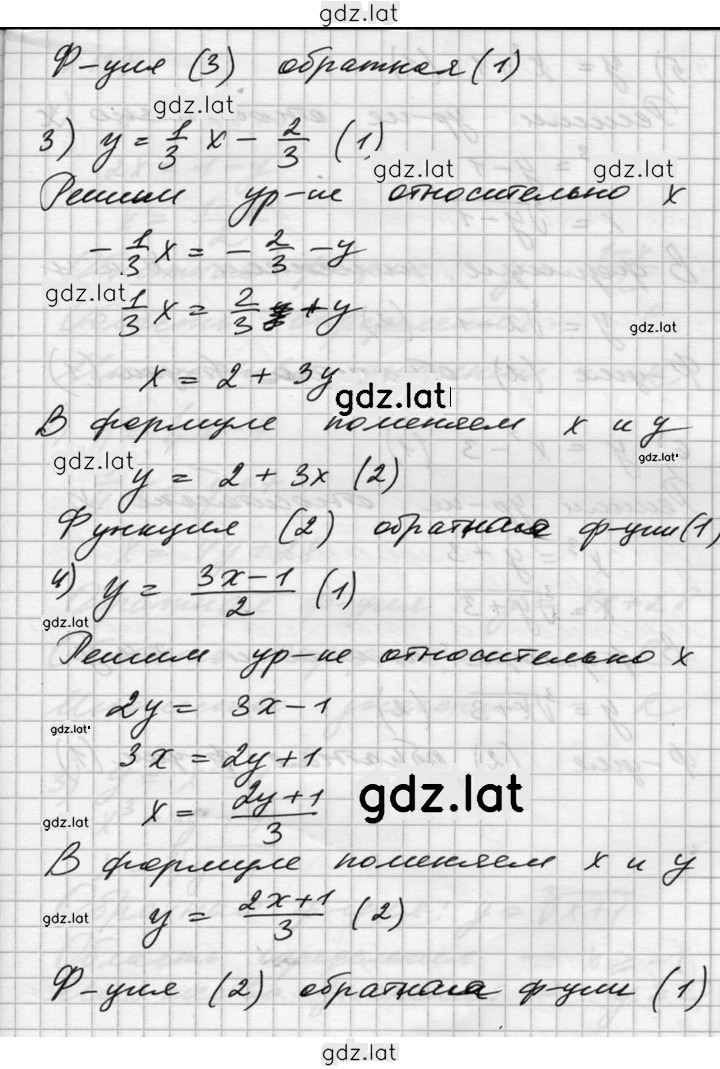 gdz.lat
Ф-ция (3) обратная (1)
gdz.lat
3) y = 1/3 x - 2/3 (1)
gdz.lat gdz.lat
Решим ур-ие относительно x
- 1/3 x = - 2/3 - y
gdz.lat
1/3 x = 2/3 + y
gdz.lat
x = 2 + 3y
gdz.lat
В формуле поменяем x и y
gdz.lat gdz.lat
y = 2 + 3x (2)
Функция (2) обратная ф-ции (1)
4) y = (3x-1)/2 (1)
gdz.lat
Решим ур-ие относительно x
2y = 3x-1
gdz.lat
3x = 2y+1
gdz.lat
x = (2y+1)/3
gdz.lat
В формуле поменяем x и y
gdz.lat
y = (2x+1)/3 (2)
Ф-ция (2) обратная ф-ции (1)
gdz.lat